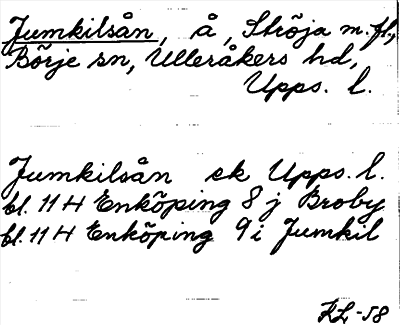 Jumkilsån, å, Ströja m. fl.,
Börje sn, Ulleråkers hd,
Upps. l.
Jumkilsån ek Upps. l.
bl. 11 H Enköping 8 j Broby
bl. 11 H Enköping 9 i Jumkil
KL-58